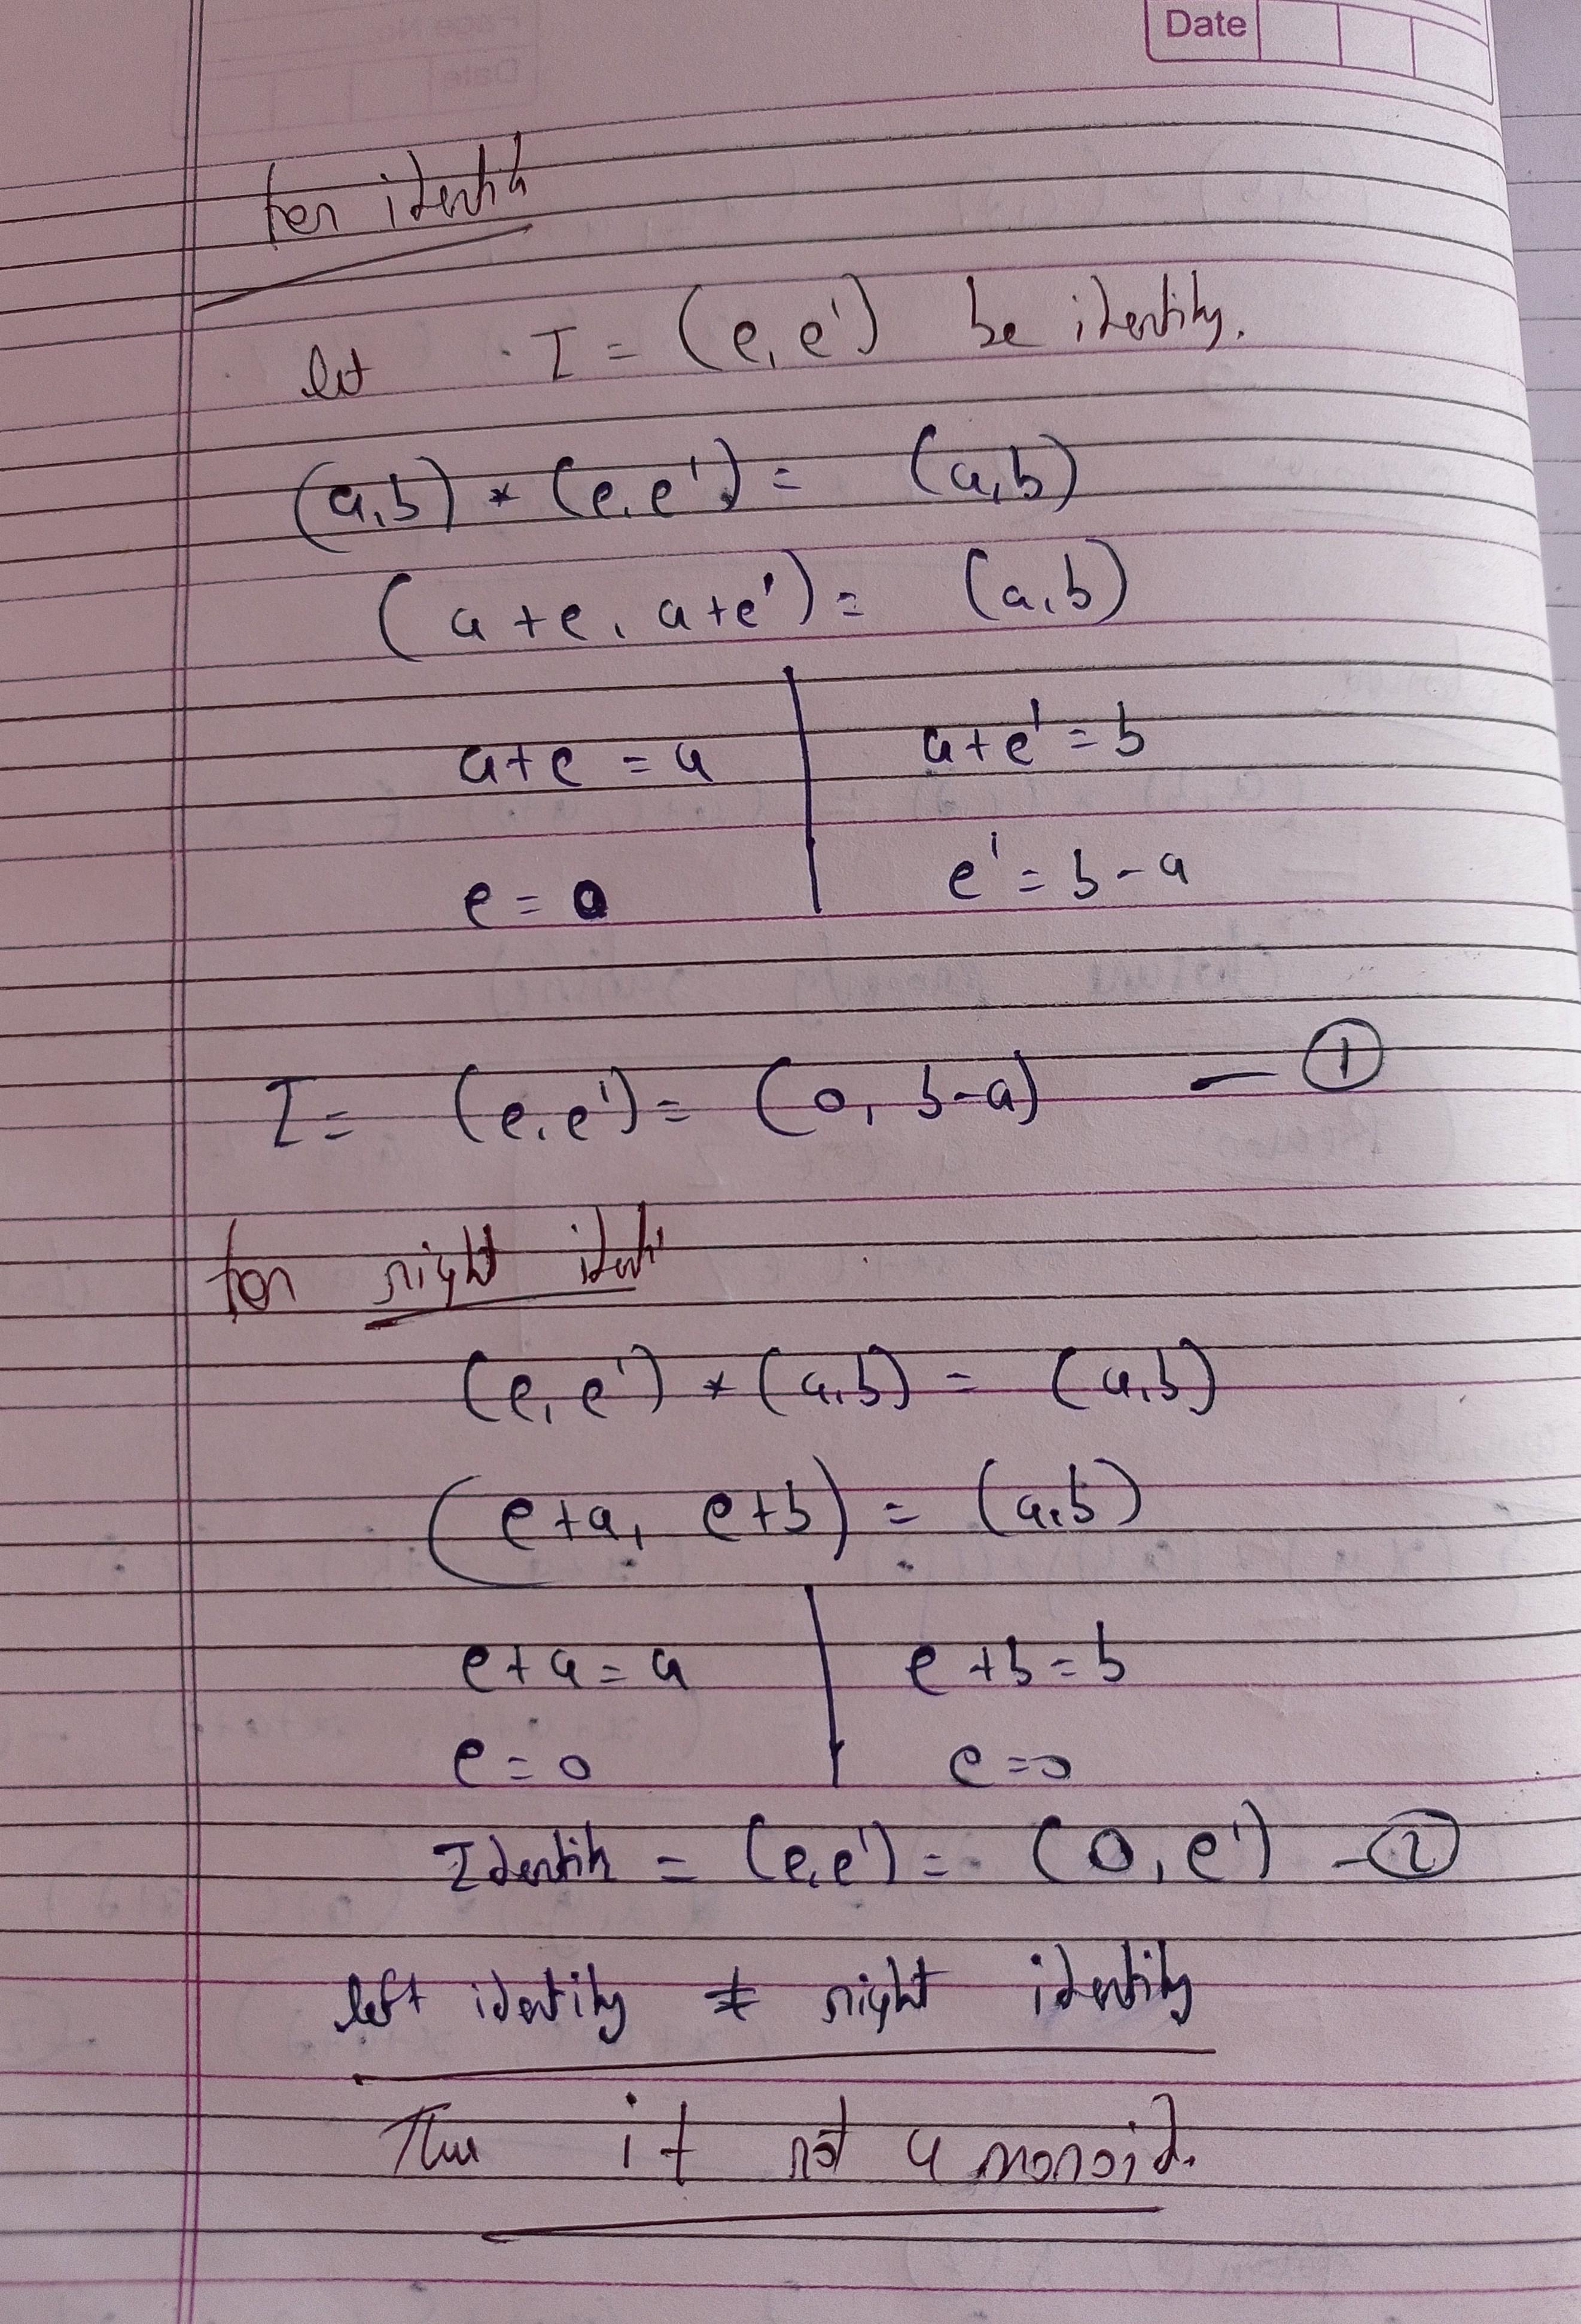 Date
for identity
let I = (e, e') be identity.
(a,b) * (e, e') = (a,b)
(a+e, a+e') = (a,b)
a+e = a | a+e' = b
e = 0 | e' = b-a
I = (e, e') = (0, b-a) — ①
for right identi
(e, e') * (a,b) = (a,b)
(e+a, e+b) = (a,b)
e+a = a | e+b = b
e = 0 | e = 0
Identity = (e, e') = (0, e') — ②
left identity ≠ right identity
Thus it not a monoid.